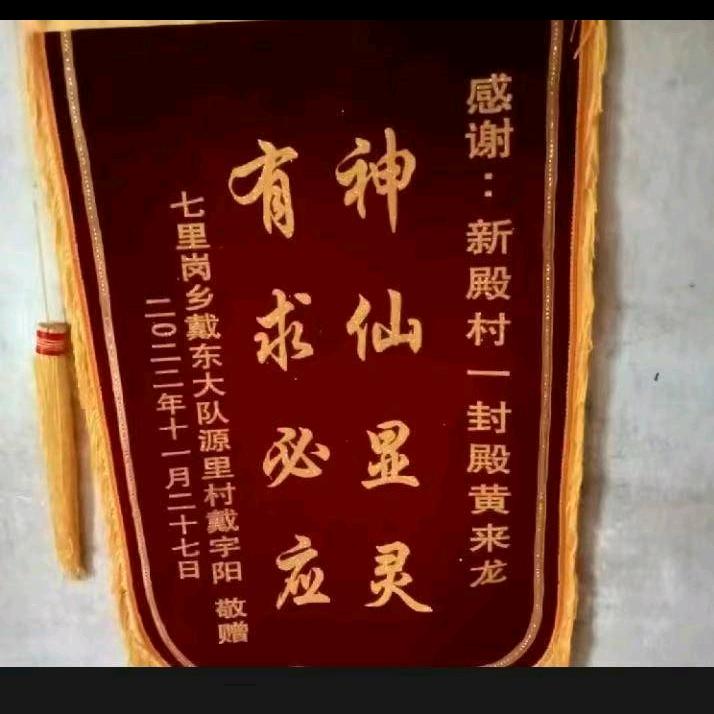 感谢：新殿村一封殿黄来龙
神仙显灵
有求必应
七里岗乡戴东大队源里村戴宇阳 敬赠
二〇二二年十一月二十七日